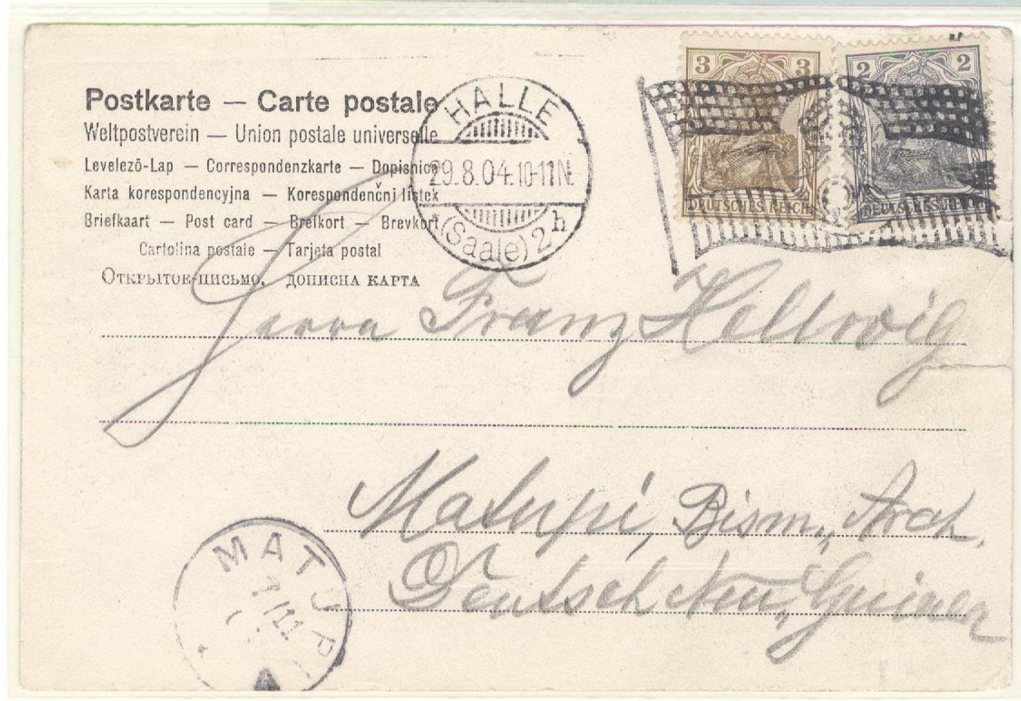 Postkarte — Carte postale
Weltpostverein — Union postale universelle
Levelező-Lap — Correspondenzkarte — Dopisnice
Karta korespondencyjna — Korespondenční lístek
Briefkaart — Post card — Brefkort — Brevkort
Cartolina postale — Tarjeta postal
Открытое-письмо, дописна карта
HALLE
29.8.04.10-11N.
(Saale) 2 h
3 3
DEUTSCHES REICH
2 2
DEUTSCHES REICH
Herrn Franz Hellwig
Matupi, Bism. Arch.
Deutsch Neu Guinea
MATUPI